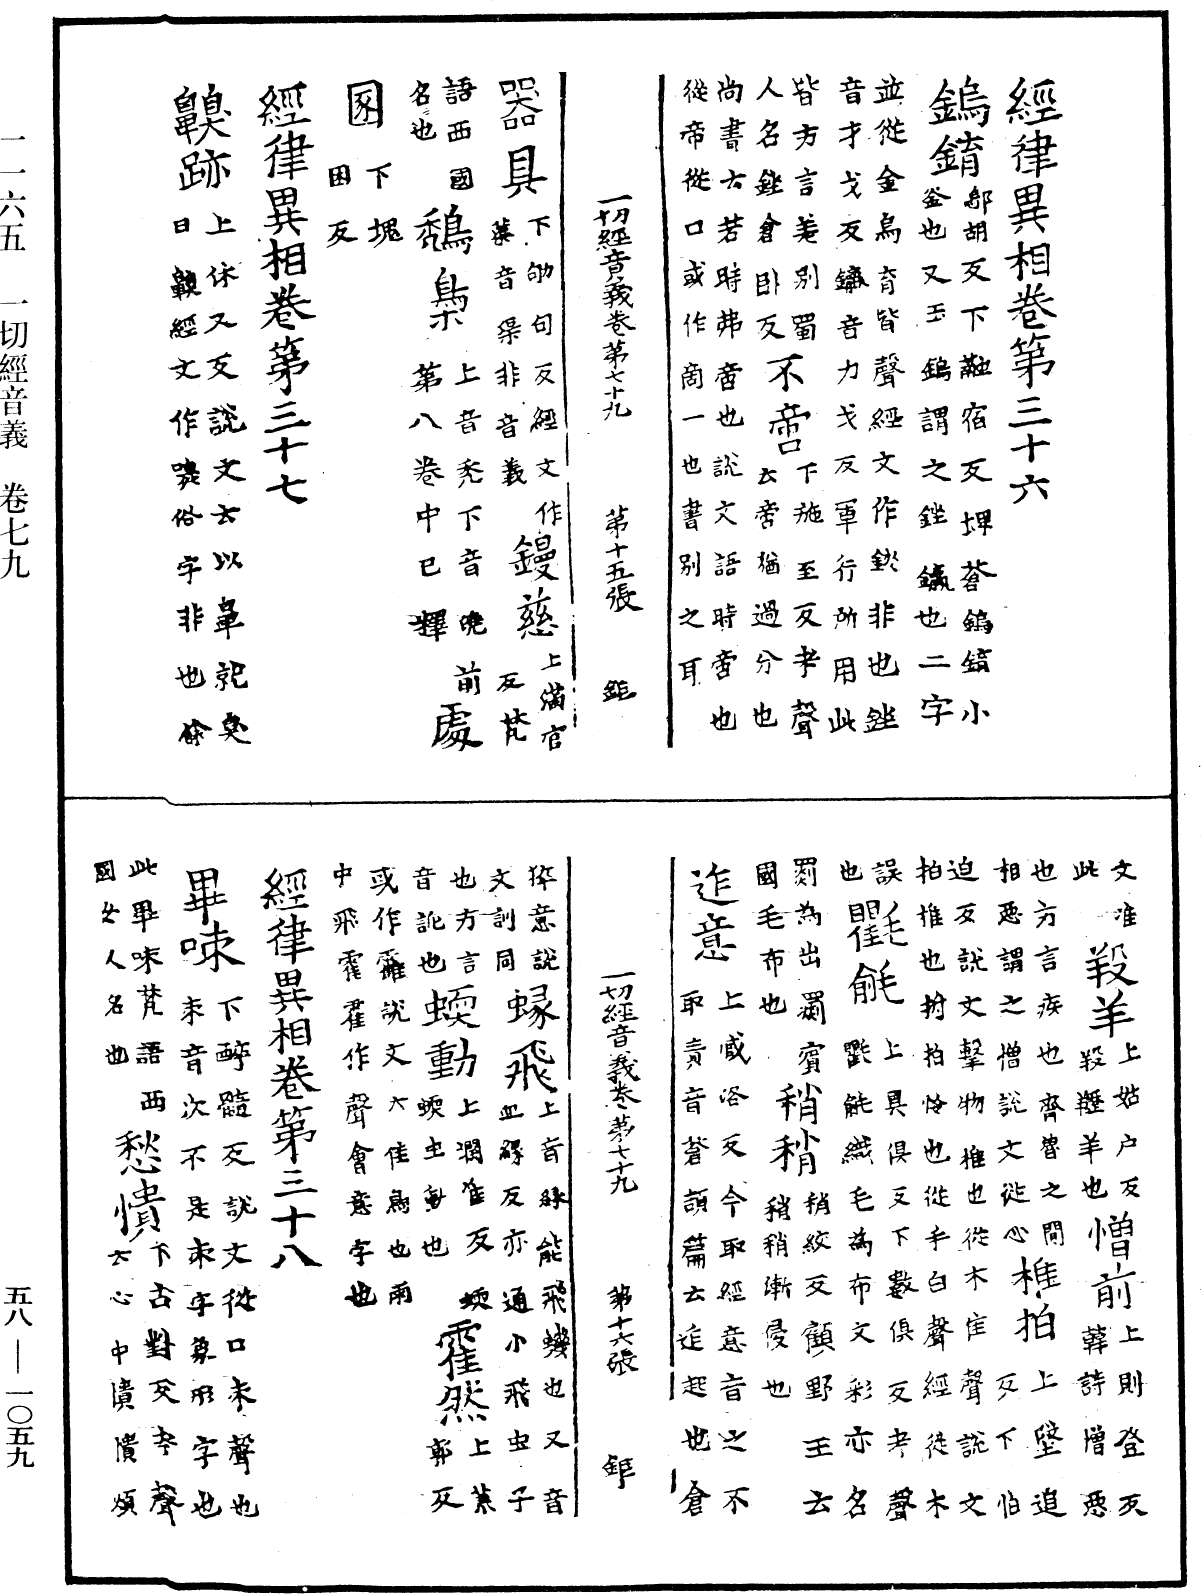 經律異相卷第三十六
鎢錥 鄔胡反下融宿反埤蒼鎢錥小
釜也又玉鎢謂之銼鑹也二字
並從金烏育皆聲經文作鋘非也銼
音才戈反鑹音力戈反軍行所用此
皆方言差別蜀
人名銼倉臥反 不啻 下施至反考聲
云啻猶過分也
尚書云若時弗啻也說文語時啻也
從帝從口或作商一也書別之耳
一切經音義卷第七十九 第十五張 鉅
器具 下劬句反經文作
蕖音渠非音義 鏝慈 上滿官
反梵
語西國
名也 鵚梟 上音禿下音曉前
第八卷中已釋 處
圂 下塊
困反
經律異相卷第三十七
齅跡 上休又反說文云以鼻就臭
曰齅經文作嗅俗字非也
文准
此 羖羊 上姑戶反
羖䍽羊也 憎前 上則登反
韓詩憎惡
也方言疾也齊魯之間
相惡謂之憎說文從心 椎拍 上墜追
反下怕
迫反說文擊物椎也從木隹聲說文
拍推也拊拍怜也從手白聲經從木
誤 上具俱反下數俱反考聲
也 氍毹 氍毹織毛為布文彩亦名
罽為出罽賓
國毛布也 稍稍 稍絞反顧野王云
稍稍漸侵也
迮意 上咸洛反今取經意音之不
取責音蒼頡篇云迮起也倉
一切經音義卷第七十九 第十六張 鉅
猝意說
文訓同 蝝飛 上音緣能飛蟻也又音
血緣反亦通小飛虫子
也方言
音訛也 蝡動 上潤准反
蝡虫動也 霍然 上荒
郭反
或作靃說文大隹鳥也雨
中飛霍霍作聲會意字也
經律異相卷第三十八
畢㖨 下醉髓反說文從口朿聲也
朿音次不是束字象形字也
此畢㖨梵語西
國女人名也 愁憒 下古對反考聲
云心中憒憒煩
一一六五 一切經音義 卷七九
五八—一〇五九